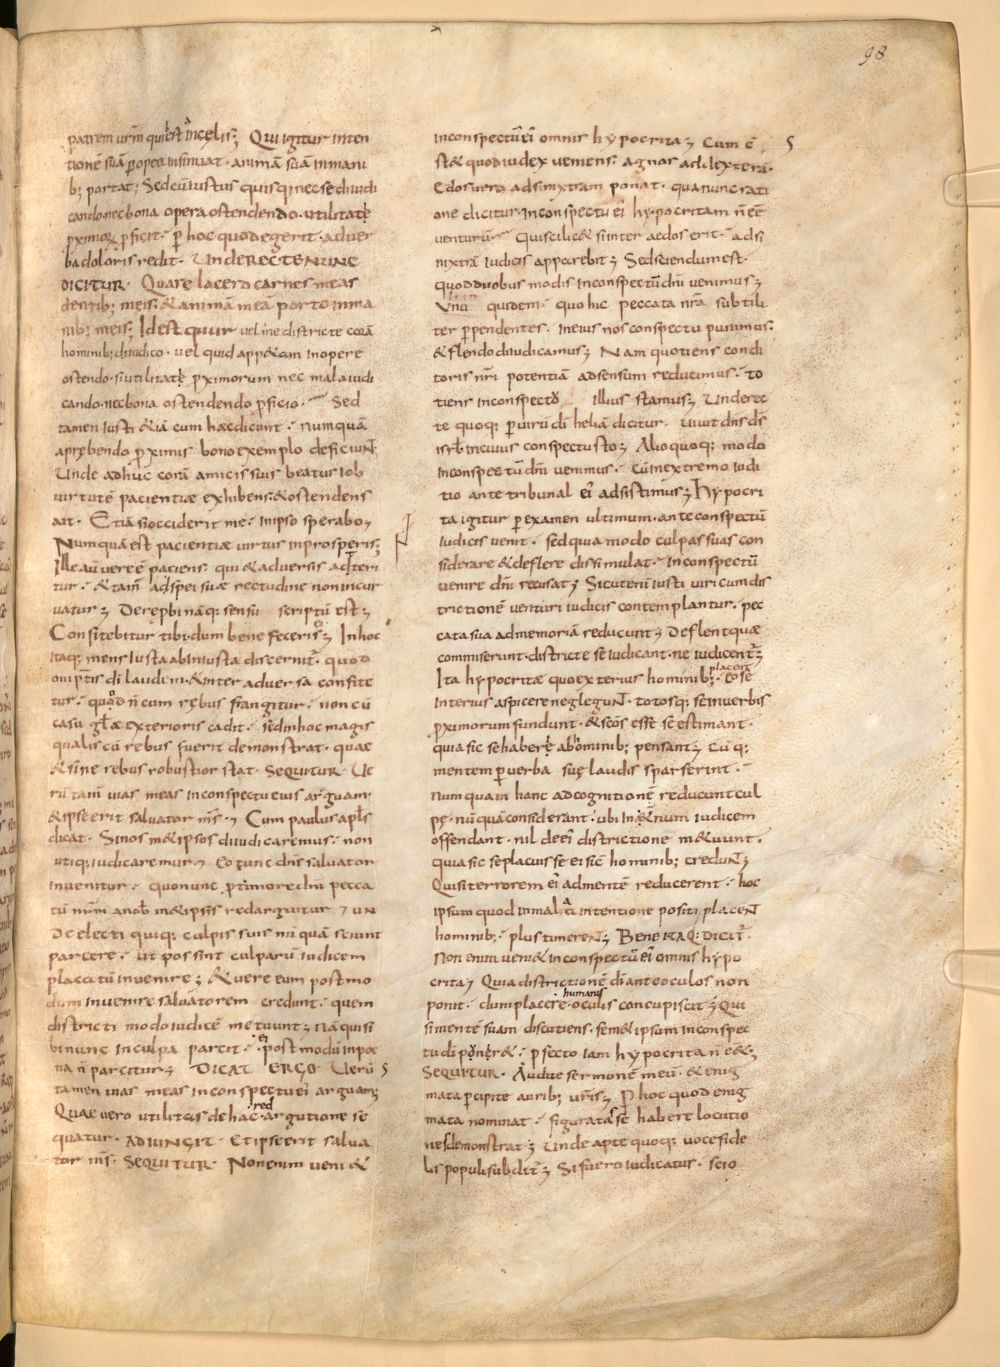 98
patrem urm̄ qui est in celis; Qui igitur inten
tionē suā p opera insinuat · animā suā in mani
b; portat; Sed cū iustus quisq; nec se diiudi
cando nec bona opera ostendendo · utilitatē
pximorꝫ pficit · p hoc quod egerit · adver
ba doloris redit · UNDE RECTE NUNC
DICITUR · Quare lacero carnes meas
dentib; meis · & animā meā porto in ma
nib; meis; Id est quur vel me districte corā
hominib; diiudico · vel quid app&am in opere
ostendo · si utilitatē pximorum nec mala iudi
cando · nec bona ostendendo pficio · Sed
tamen iusti &iā cum haec dicunt · numquā
a prębendo pximis bono exemplo deficiunt
Unde adhuc corā amicis suis beatus iob
virtutē pacientiae exhibens · & ostendens
ait · Etiā si occiderit me · in ipso sperabo;
Numquā est pacientiae virtus in prosperis;
Ille aū vere ē paciens · qui & adversis adteri
tur · & tam̄ ad spei suae rectudine non incur
vatur; De repbi nāq; sensū scriptū est;
Confitebitur tibi dum bene feceris ei; In hoc
itaq; mens iusta ab iniusta discernit · quod
omptis dī laudem · & inter adversa confite
tur · quod n̄ cum rebus frangitur · non cū
casu glae exterioris cadit · sed in hoc magis
qualis cū rebus fuerit demonstrat · quae
& sine rebus robustior stat · SEQUITUR · Ue
rū tam̄ vias meas in conspectu eius arguam
& ipse erit salvator ms̄; Cum paulus apls
dicat · Si nos m&ipsos diiudicaremus · non
utiq; iudicaremur; Eo tunc dn̄s salvator
invenitur · quo nunc p timore dn̄i pecca
tū nr̄m a nob̄ m&ipsis redarguitur; UN
DE electi quiq; culpis suis nū quā sciunt
parcere · ut possint culparū iudicem
placatū invenire; & vere eum postmo
dum invenire salvatorem credunt · quem
districti modo iudicē metuunt; Nā qui si
bi nunc in culpa parcit · ei postmodū in poe
na n̄ parcitur; DICAT ERGO Uerū
tamen vias meas in conspectu ei arguam;
Quae vero utilitas de hac redargutione se
quatur · ADIUNGIT · Et ipse erit salva
tor ms̄ · SEQUITUR · Non enim veni&
in conspectū ei omnis hypocrita; Cum ē
st& quod iudex veniens · agnos ad dexterā ·
Edos vero ad sinixtram ponat · qua nunc rati
one dicitur · In conspectu ei hypocritam n̄ eē
venturū · Qui scilic& si inter aedos erit · ad si
nixtrā iudicis apparebit; Sed sciendum est ·
quod duobus modis in conspectū dn̄i venimus;
Unū quidem · quo hic peccata nr̄a subtili
ter ppendentes · in eius nos conspectu punimus ·
& flendo diiudicamus; Nam quotiens condi
toris nr̄i potentiā ad sensum reducimus · to
tiens in conspectū illius stamus; Unde rec
te quoq; p virū dī heliā dicitur · Uivit dn̄s ds̄
isrl̄ in cuius conspectu sto; Alio quoq; modo
in conspectū dn̄i venimus · Cū in extremo iudi
tio ante tribunal ei adsistimus; Hypocri
ta igitur p examen ultimum · ante conspectū
iudicis venit · sed quia modo culpas suas con
siderare & deflere dissimulat · In conspectū
venire dn̄i recusat; Sicut enī iusti viri cum dis
trictionē venturi iudicis contemplantur · pec
cata sua ad memoriā reducunt; Deflent quae
commiserunt · districte se iudicant · ne iudicent;
Ita hypocritae quo exterius hominib; placent · eo se
interius aspicere neglegunt · totosq; se in verbis
pximorum fundunt · & scōs esse se estimant ·
quia sic se habere ab hominib; pensant; Cūq;
mentem p verba suę laudis sparserint ·
numquam hanc ad cognitionē reducunt cul
pę · nū quā considerant · ubi in &ernum iudicem
offendant · nil de ei districtione m&uunt ·
quia sic se placuisse ei sic̄ hominib; credunt;
Qui si terrorem ei ad mentē reducerent · hoc
ipsum quod in mala ei intentione positi placent
hominib; · plus timerent; BENE ITAQ; DICIT ·
Non enim veni& in conspectū ei omnis hypo
crita; Quia districtionē dī ante oculos non
ponit · dum placere humanis oculis concupiscit; Qui
si mentē suam discutiens · sem&ipsum in conspec
tu dī poner& · p fecto iam hypocrita n̄ eē&;
SEQUITUR · Audite sermonē meū · & enig
mata pcipite aurib; urīs; P hoc quod enig
mata nominat · figuratas se habere locutio
nes demonstrat; Unde apte quoq; voce fide
lis populi subdit; Si fuero iudicatus · scio